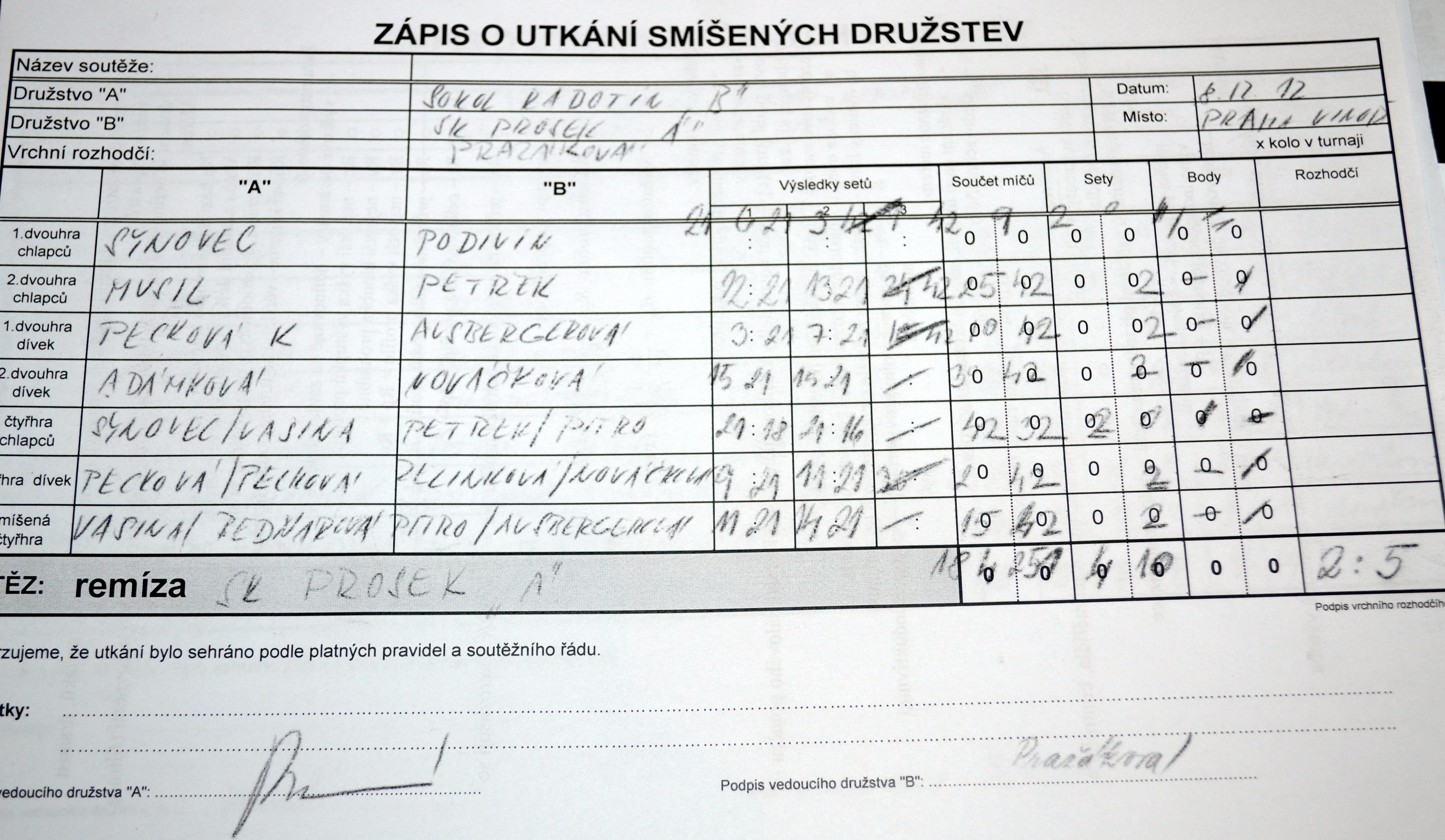 ZÁPIS O UTKÁNÍ SMÍŠENÝCH DRUŽSTEV
Název soutěže:
Družstvo "A" SOKOL RADOTÍN "B" Datum: 8.12 12
Družstvo "B" SK PROSEK "A" Místo: PRAHA VINOŘ
Vrchní rozhodčí: PRAŽÁKOVÁ x kolo v turnaji
"A" "B" Výsledky setů Součet míčů Sety Body Rozhodčí
1 2 3
1.dvouhra chlapců SYNOVEC PODIVÍN 21 6 21 3 42 9 2 0 1 0
2.dvouhra chlapců MUSIL PETREK 12:21 13 21 25 42 0 2 0 1
1.dvouhra dívek PECKOVÁ K AUSBERGEROVÁ 3:21 7:21 10 42 0 2 0 1
2.dvouhra dívek ADÁMKOVÁ NOVÁČKOVÁ 15 21 15 21 42 0 2 0 1
čtyřhra chlapců SYNOVEC/VASINA PETREK/PITRO 21:18 21:16 42 32 2 0 1 0
hra dívek PECKOVÁ/PECKOVÁ 9:21 11:21 20 42 0 2 0 1
míšená čtyřhra VASINA/BEDNAROVÁ PITRO/AUSBERGEROVÁ 11 21 14 21 15 42 0 2 0 1
TĚZ: remíza SK PROSEK "A" 184 251 4 10 0 0 2:5
Podpis vrchního rozhodčíh
rzujeme, že utkání bylo sehráno podle platných pravidel a soutěžního řádu.
tky:
vedoucího družstva "A": Podpis vedoucího družstva "B": Pražáková